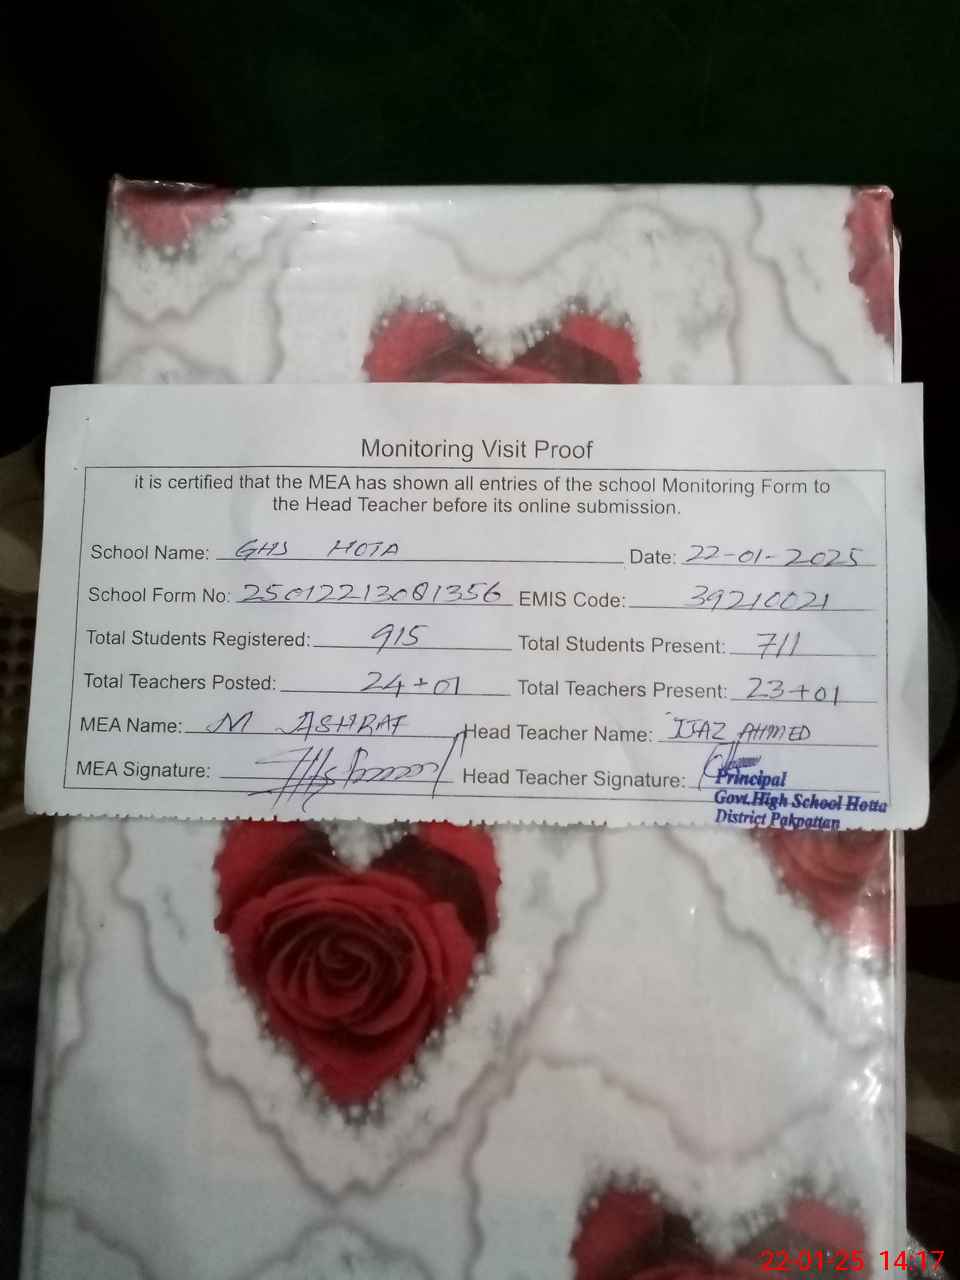 Monitoring Visit Proof
it is certified that the MEA has shown all entries of the school Monitoring Form to
the Head Teacher before its online submission.
School Name: GHS HOTA Date: 22-01-2025
School Form No: 25012213081356 EMIS Code: 39210021
Total Students Registered: 915 Total Students Present: 711
Total Teachers Posted: 24+01 Total Teachers Present: 23+01
MEA Name: M ASHRAF Head Teacher Name: IJAZ AHMED
MEA Signature: Head Teacher Signature:
Principal
Govt.High School Hotta
District Pakpattan
22-01-25 14:17